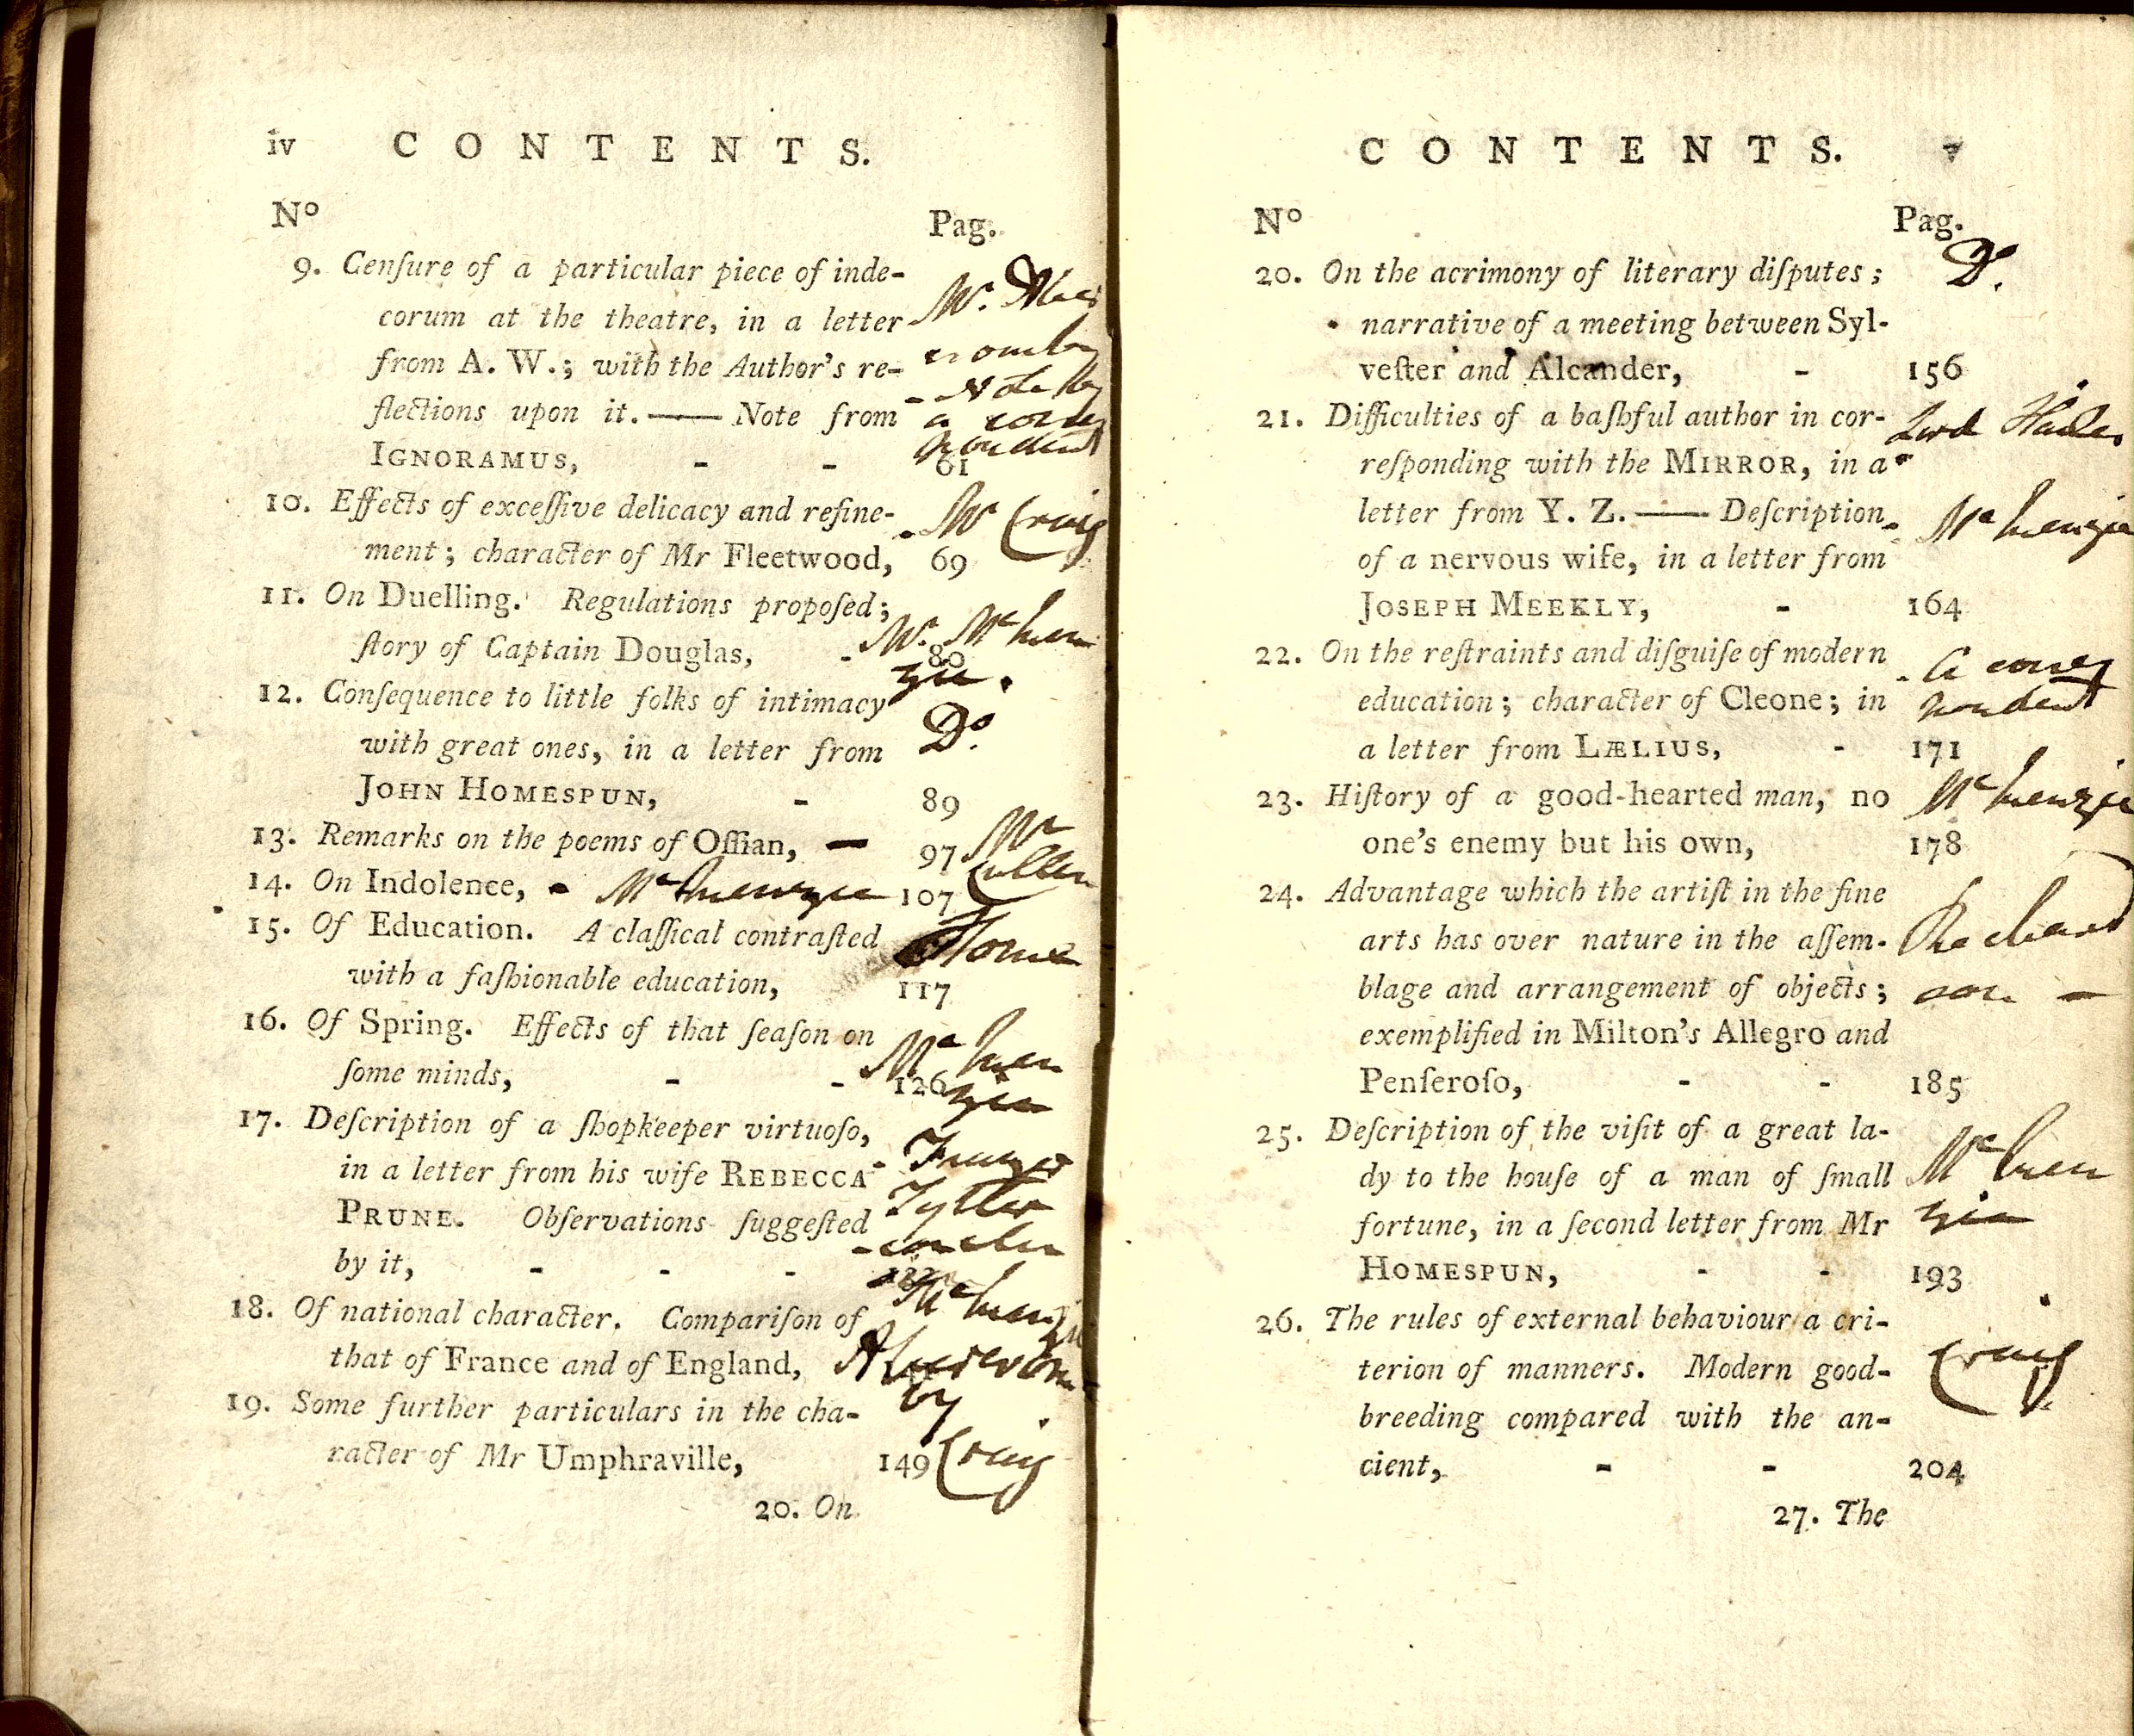 iv CONTENTS.
Nº Pag.
9. Cenſure of a particular piece of inde-
corum at the theatre, in a letter Mr. Aber
from A. W.; with the Author's re- cromby
flections upon it.—— Note from - Note by
a corres
IGNORAMUS, - - 61 pondent
10. Effects of exceſſive delicacy and refine- Mr Craig
ment; character of Mr Fleetwood, 69
11. On Duelling. Regulations propoſed;
ſtory of Captain Douglas, - 80 Mr. McKen
zie.
12. Conſequence to little folks of intimacy
with great ones, in a letter from Dº.
JOHN HOMESPUN, - 89
13. Remarks on the poems of Oſſian, — 97 Mr Cullen
14. On Indolence, - McKenzie 107
15. Of Education. A claſſical contraſted Home
with a faſhionable education, 117
16. Of Spring. Effects of that ſeaſon on McKen
ſome minds, - - 126 zie
17. Deſcription of a ſhopkeeper virtuoſo,
in a letter from his wife REBECCA - Frazer
PRUNE. Obſervations ſuggeſted Tytler
by it, - - -
McKenzie
18. Of national character. Compariſon of
that of France and of England, Abercrom
by
19. Some further particulars in the cha-
racter of Mr Umphraville, 149 Craig
20. On
CONTENTS. v
Nº Pag.
20. On the acrimony of literary diſputes; Dº.
narrative of a meeting between Syl-
veſter and Alcander, - 156
21. Difficulties of a baſhful author in cor- Lord Hailes
reſponding with the MIRROR, in a
letter from Y. Z.—— Deſcription - McKenzie
of a nervous wife, in a letter from
JOSEPH MEEKLY, - 164
22. On the reſtraints and diſguiſe of modern - a corres
education; character of Cleone; in pondent
a letter from LÆLIUS, - 171
23. Hiſtory of a good-hearted man, no McKenzie
one's enemy but his own, 178
24. Advantage which the artiſt in the fine
arts has over nature in the aſſem- Richard
blage and arrangement of objects; son —
exemplified in Milton's Allegro and
Penſeroſo, - - 185
25. Deſcription of the viſit of a great la-
dy to the houſe of a man of ſmall McKen
fortune, in a ſecond letter from Mr zie
HOMESPUN, - - 193
26. The rules of external behaviour a cri-
terion of manners. Modern good- Craig
breeding compared with the an-
cient, - - 204
27. The